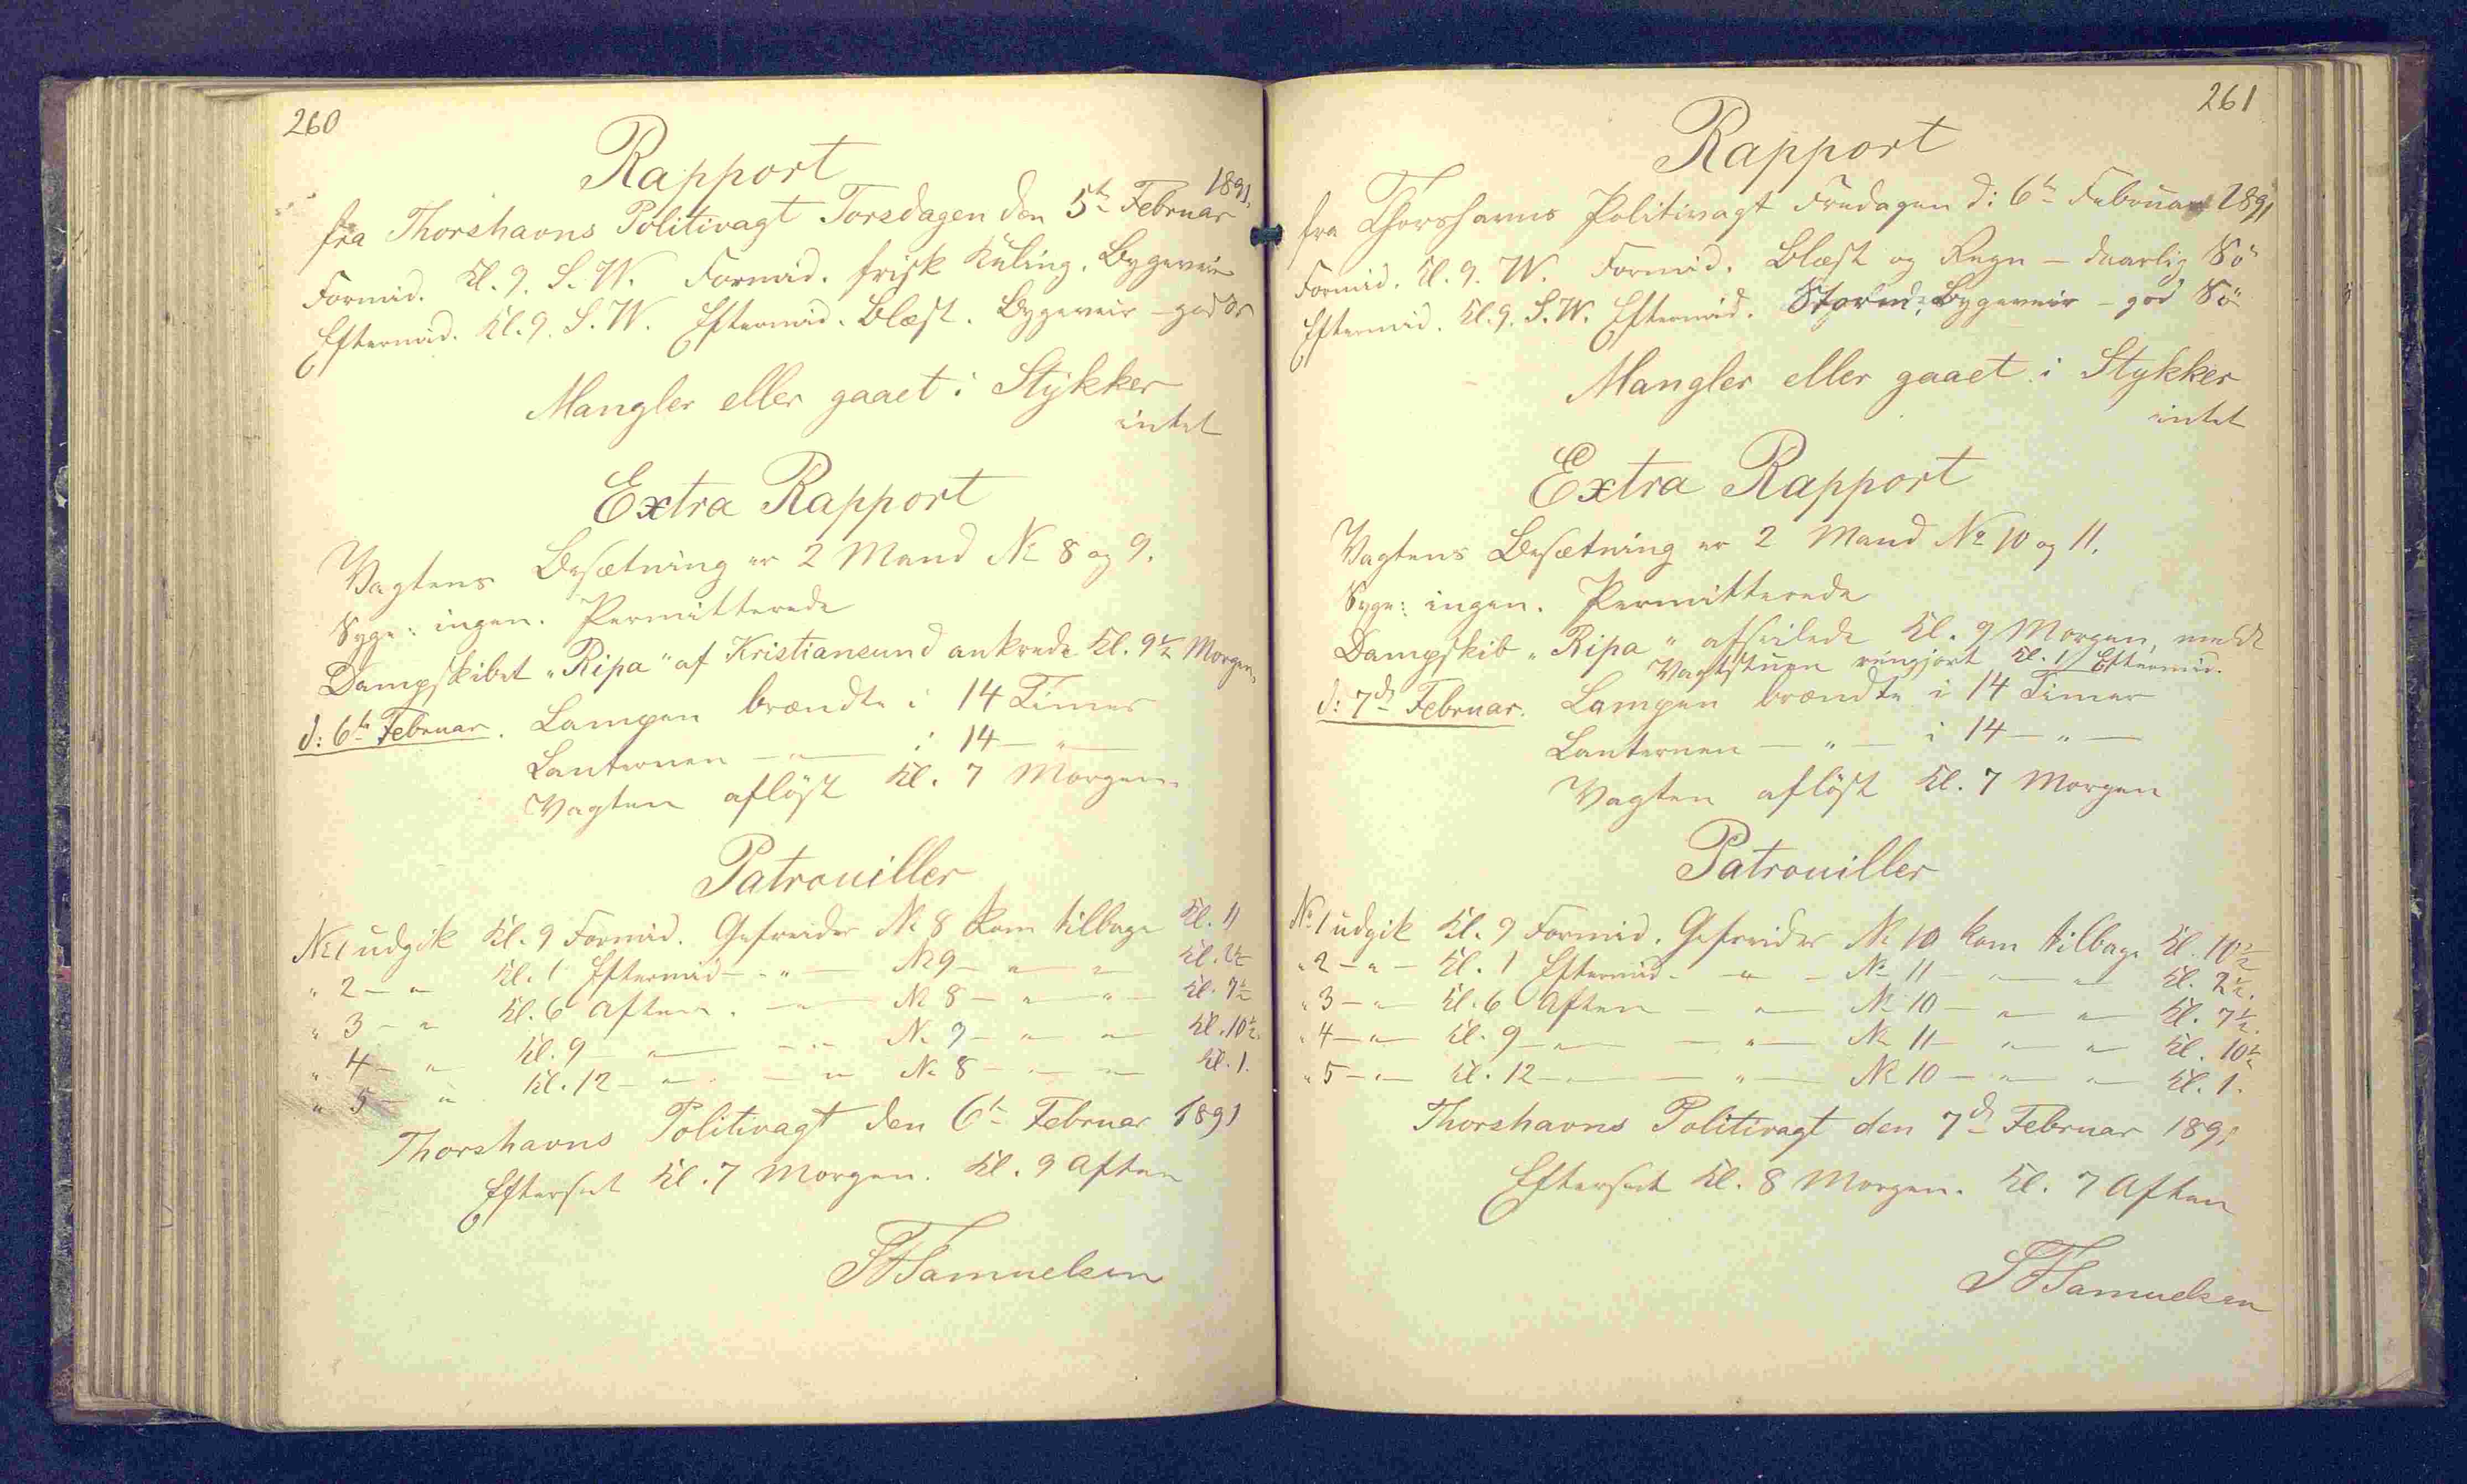 260
Rapport
1891.
fra Thorshavns Politivagt Torsdagen den 5te Februar
Formid. Kl. 9. S.W. Formid. frisk Kuling. Bygeveir
Eftermid. Kl. 9. S.W. Eftermid. Blæst. Bygeveir – god
Mangler eller gaaet i Stykker
intet
Extra Rapport
Vagtens Besætning er 2 Mand No 8 og 9.
Syge: ingen. Permitterede
Dampskibet „Ripa" af Kristiansund ankrede Kl. 9½ Morgen,
d: 6te Februar. Lampen brændte i 14 Timer
Lanternen — „ — i 14 — „ —
Vagten afløst Kl. 7 Morgen
Patrouiller
No 1 udgik Kl. 9 Formid. Gefreider No 8 kom tilbage Kl. 11
„ 2 – „ Kl. 1 Eftermid – „ – No 9 – „ – „ Kl. 2½
„ 3 – „ Kl. 6 Aften. – „ – No 8 – „ – „ – Kl. 7½
„ 4 – „ Kl. 9 – „ – – „ – No 9 – „ – „ Kl. 10½.
„ 5 – „ Kl. 12 – „ – – „ No 8 – „ – „ Kl. 1.
Thorshavns Politivagt den 6te Februar 1891
Efterset Kl. 7 Morgen. Kl. 9 Aften
Samuelsen
261
Rapport
fra Thorshavns Politivagt Fredagen d: 6te Februar 1891
Formid. Kl. 9. W. Formid. Blæst og Regn – daarlig Sö
Eftermid. Kl. 9. S.W. Eftermid. Storm, Bygeveir – god Sö
Mangler eller gaaet i Stykker
intet
Extra Rapport
Vagtens Besætning er 2 Mand No 10 og 11.
Syge: ingen. Permitterede
Dampskib „Ripa" afseilede Kl. 9 Morgen, meldt
Vagtstuen rengjort Kl. 1 Eftermid.
d: 7de Februar. Lampen brændte i 14 Timer
Lanternen — „ — i 14 — „ —
Vagten afløst Kl. 7 Morgen
Patrouiller
No 1 udgik Kl. 9 Formid. Gefreider No 10 kom tilbage Kl. 10½
„ 2 – „ – Kl. 1 Eftermid. – „ – No 11 – „ – „ Kl. 2½.
„ 3 – „ Kl. 6 Aften – „ – No 10 – „ – „ Kl. 7½.
„ 4 – „ Kl. 9 – „ – – „ – No 11 – „ – „ Kl. 10½
„ 5 – „ – Kl. 12 – „ – – „ – No 10 – „ – „ Kl. 1.
Thorshavns Politivagt den 7de Februar 1891
Efterset Kl. 8 Morgen. Kl. 7 Aften
Samuelsen